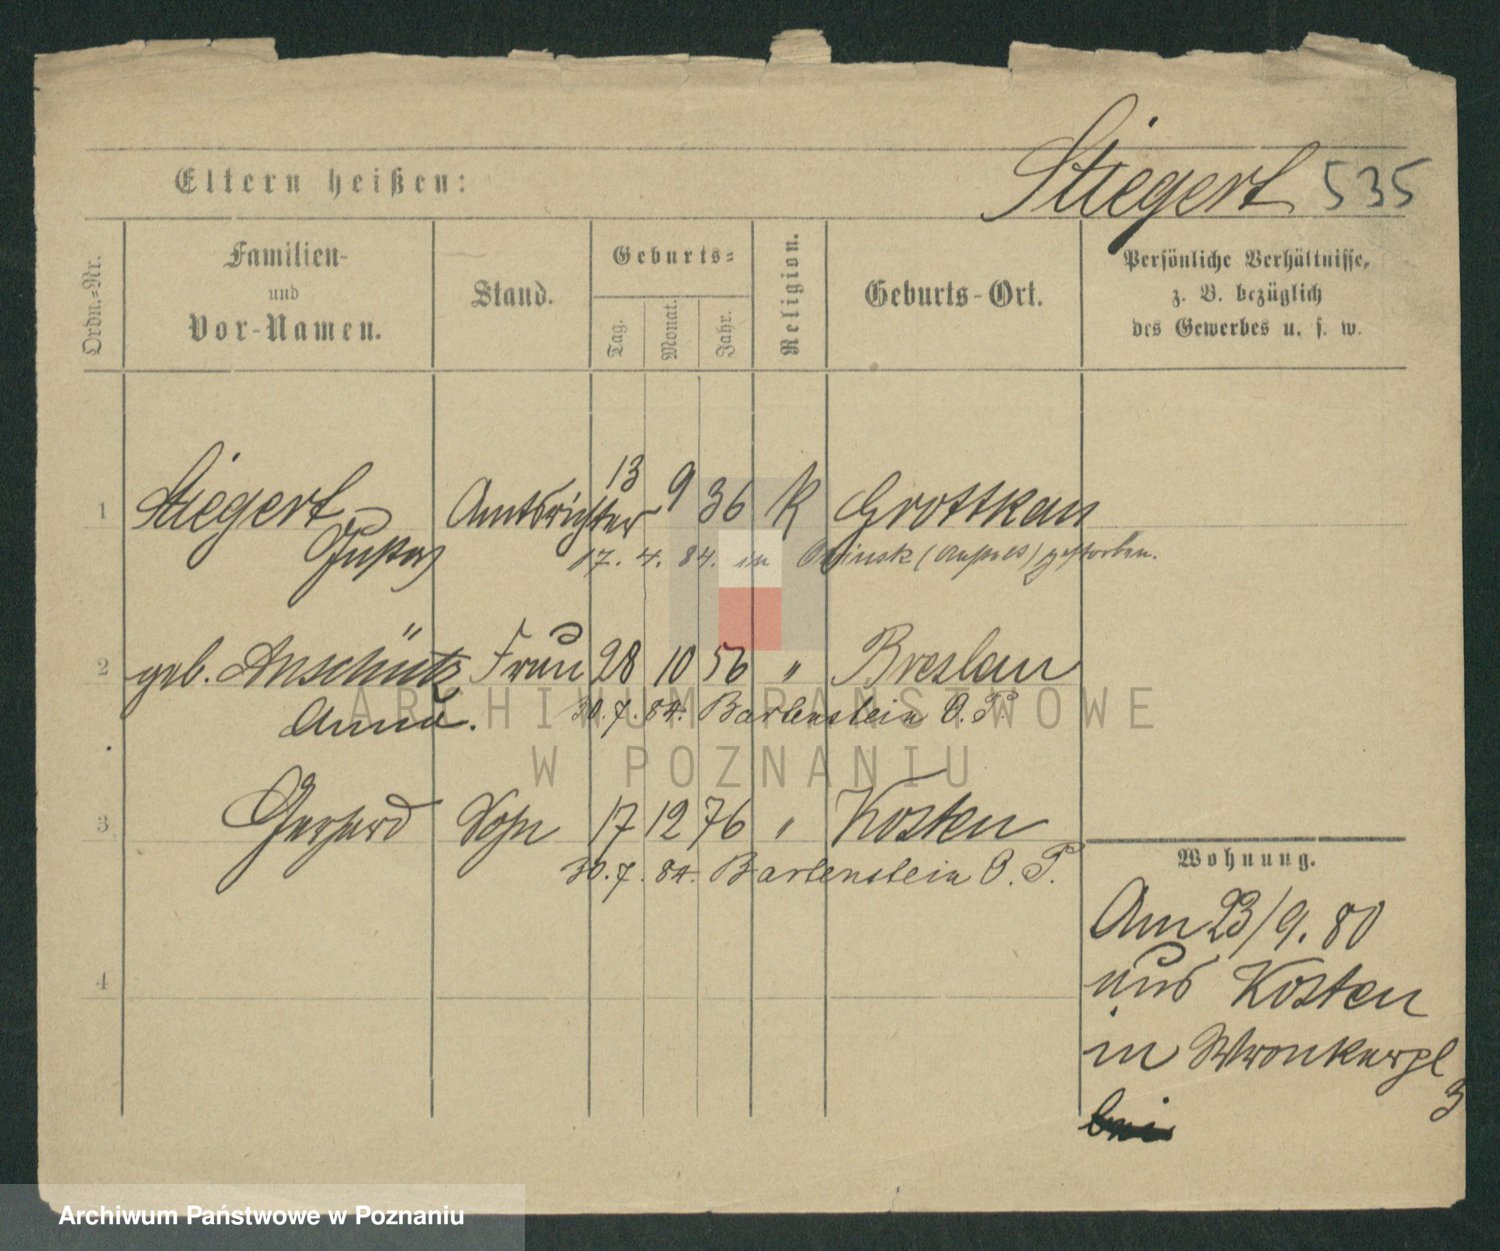 Stiegert 535
Eltern heißen:
Ordn.-Nr.
Familien-
und
Vor-Namen.
Stand.
Geburts-
Tag.
Monat.
Jahr.
Religion.
Geburts-Ort.
Persönliche Verhältnisse,
z. B. bezüglich
des Gewerbes u. s. w.
1 Stiegert Amtsrichter 13 9 36 K Grottkau
17. 4. 84. in gestorben.
2 geb. Anschütz Frau 28 10 56 " Breslau
Anna. 30. 7. 84. Bartenstein O. P.
3 Gerhard Sohn 17 12 76 " Kosten
30. 7. 84. Bartenstein O. P.
4
Wohnung.
Am 23/9. 80
aus Kosten
in Wronkerpl
3
bei
ARCHIWUM PAŃSTWOWE
W POZNANIU
Archiwum Państwowe w Poznaniu